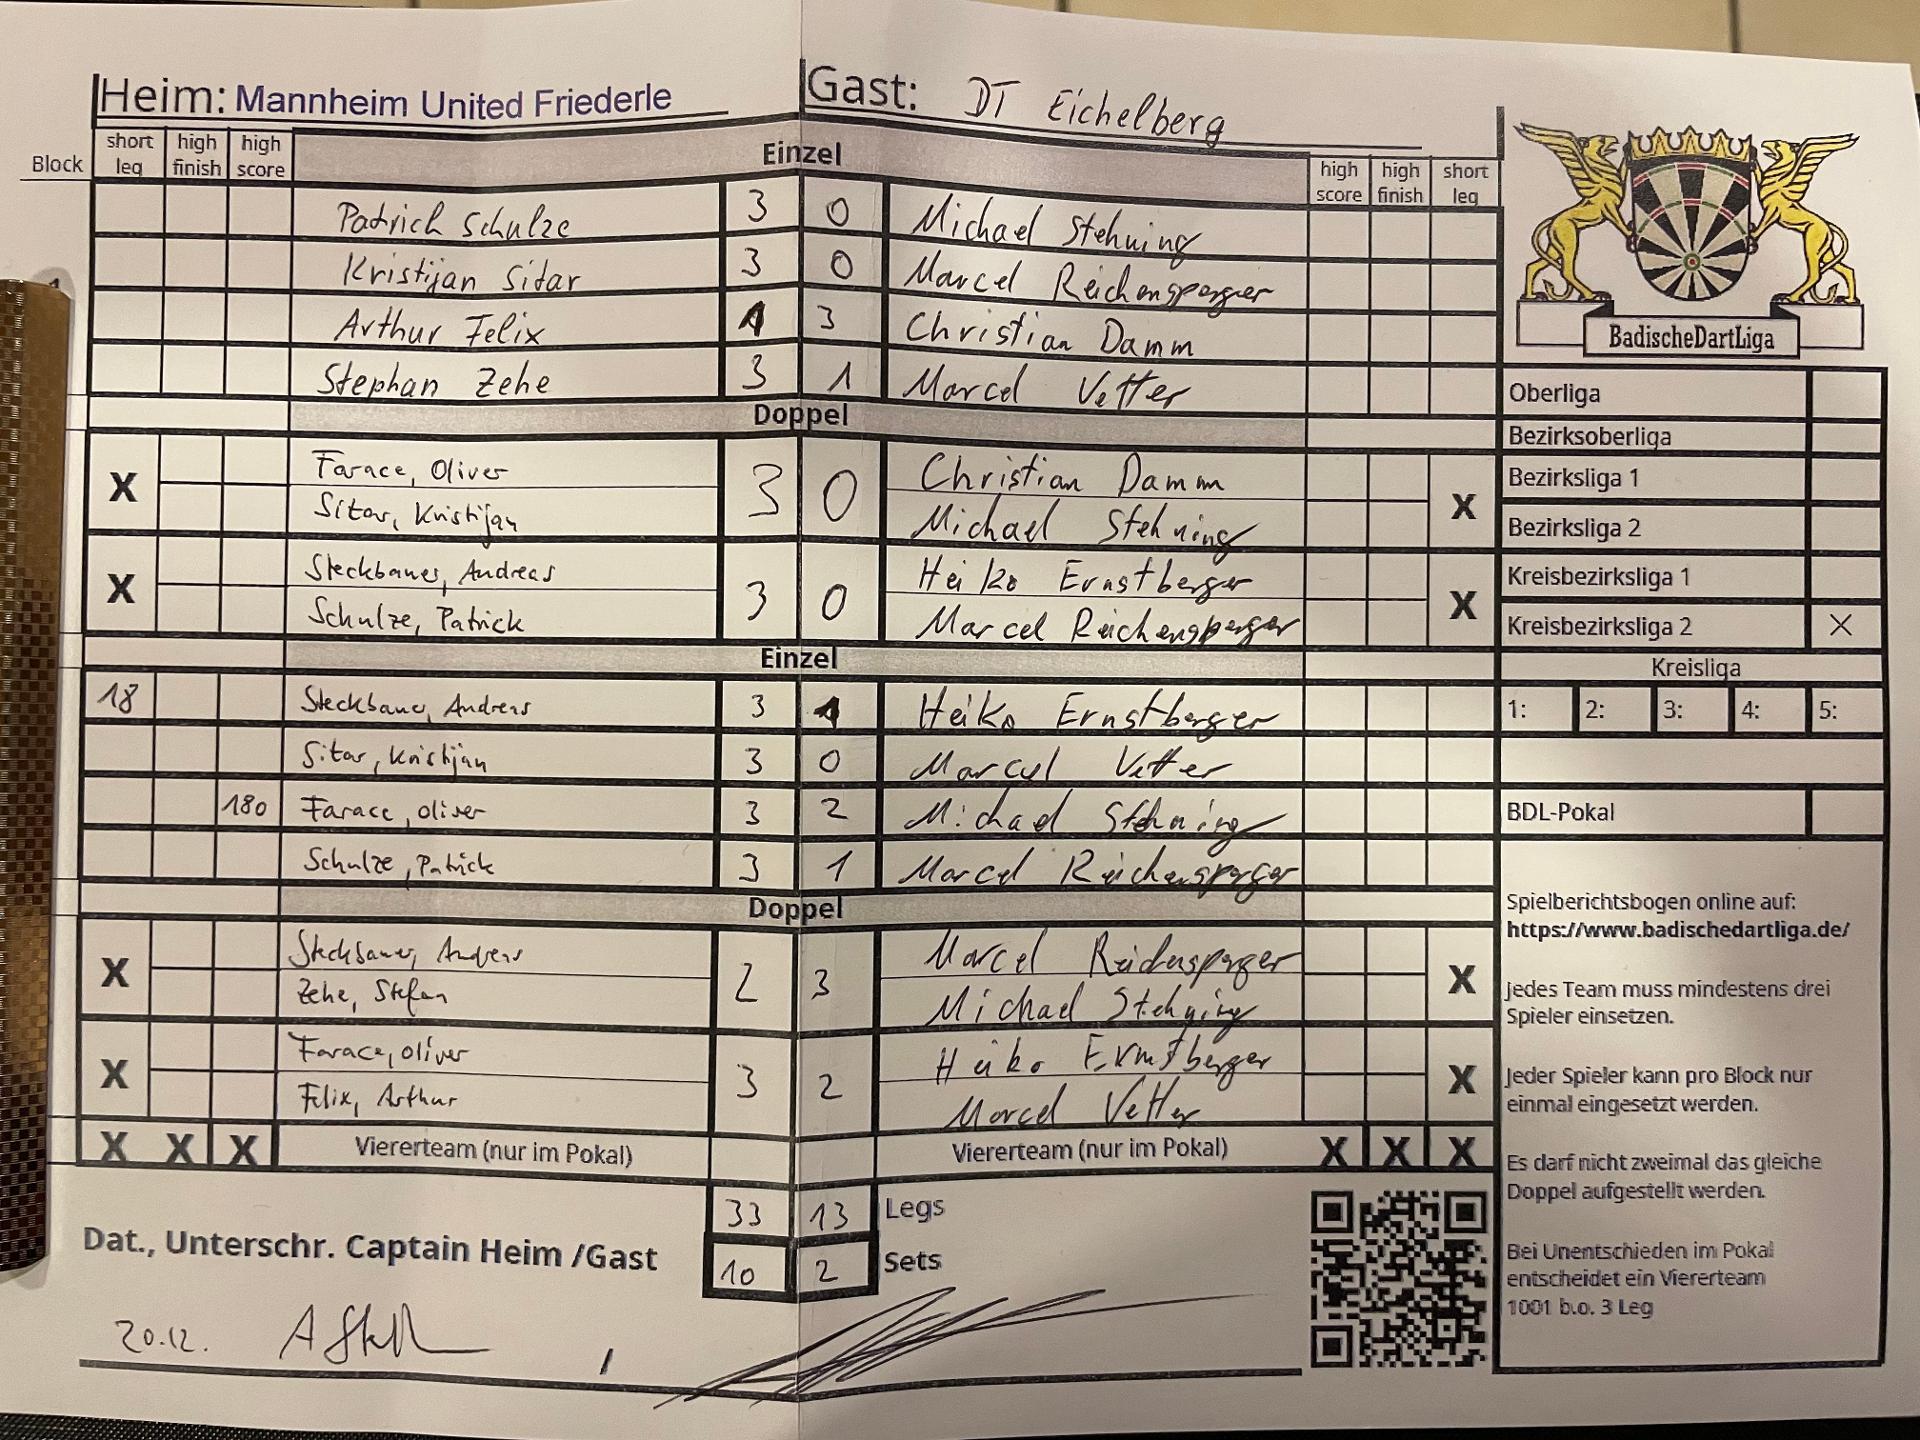 Heim: Mannheim United Friederle
Gast: DT Eichelberg
Block short leg high finish high score Einzel high score high finish short leg
Patrick Schulze 3 0 Michael Stehning
Kristijan Sitar 3 0 Marcel Reichensperger
Arthur Felix 1 3 Christian Damm
Stephan Zehe 3 1 Marcel Vetter
Doppel
X Farace, Oliver 3 0 Christian Damm X
Sitar, Kristijan Michael Stehning
X Steckbauer, Andreas 3 0 Heiko Ernstberger X
Schulze, Patrick Marcel Reichensperger
Einzel
18 Steckbauer, Andreas 3 1 Heiko Ernstberger
Sitar, Kristijan 3 0 Marcel Vetter
180 Farace, Oliver 3 2 Michael Stehning
Schulze, Patrick 3 1 Marcel Reichensperger
Doppel
X Steckbauer, Andreas 2 3 Marcel Reichensperger X
Zehe, Stefan Michael Stehning
X Farace, Oliver 3 2 Heiko Ernstberger X
Felix, Arthur Marcel Vetter
X X X Viererteam (nur im Pokal) Viererteam (nur im Pokal) X X X
33 13 Legs
Dat., Unterschr. Captain Heim /Gast 10 2 Sets
20.12.
/
BadischeDartLiga
Oberliga
Bezirksoberliga
Bezirksliga 1
Bezirksliga 2
Kreisbezirksliga 1
Kreisbezirksliga 2 X
Kreisliga
1: 2: 3: 4: 5:
BDL-Pokal
Spielberichtsbogen online auf:
https://www.badischedartliga.de/
Jedes Team muss mindestens drei
Spieler einsetzen.
Jeder Spieler kann pro Block nur
einmal eingesetzt werden.
Es darf nicht zweimal das gleiche
Doppel aufgestellt werden.
Bei Unentschieden im Pokal
entscheidet ein Viererteam
1001 b.o. 3 Leg